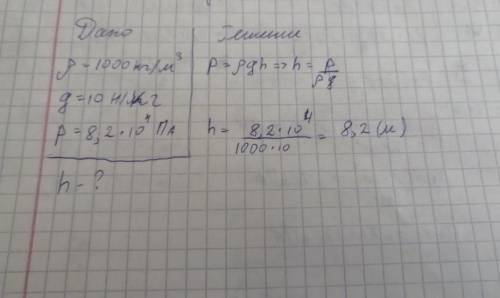 Дано
ρ = 1000 кг/м³
g = 10 Н/кг
p = 8,2·10⁴ Па
h - ?
Решение
P = ρgh => h = p/ρg
h = 8,2·10⁴/1000·10 = 8,2 (м)